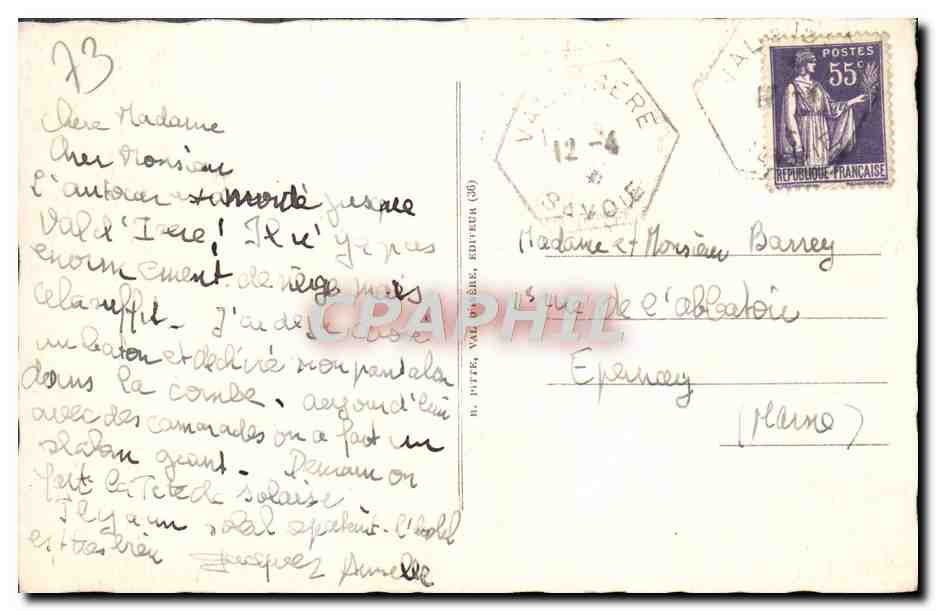 73
Chere Madame
Cher Monsieur
L'autocar monté jusque
Val d'Isere! Il n'y a pas
enormement de neige mais
cela suffit. J'ai deja cassé
un baton et dechiré mon pantalon
dans la combe. aujourd'hui
avec des camarades on a fait un
slalom geant. Demain on
fait la Tete de Solaise
Il y a un soleil epatant. l'hotel
est tres bien Jacques
VAL D'ISERE
12 - 4
SAVOIE
VAL D'
POSTES
55c
REPUBLIQUE FRANÇAISE
Madame et Monsieur Barrey
rue de l'abbatoir
Epernay
(Marne)
R. PITTE, VAL D'ISÈRE, EDITEUR (36)
CPAPHIL